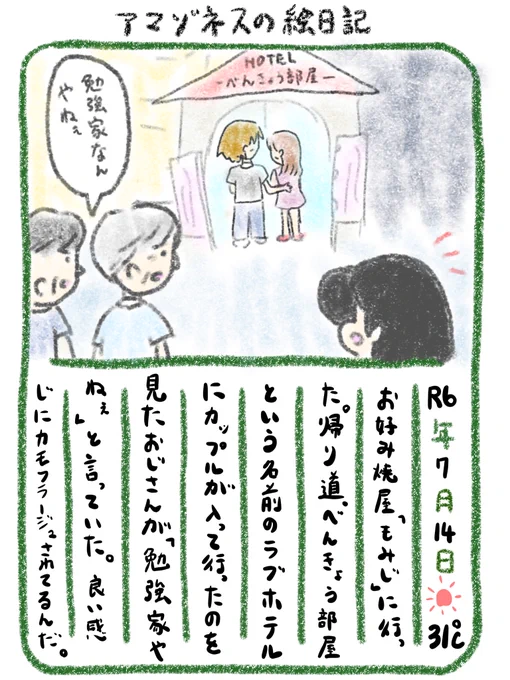 アマゾネスの絵日記
HOTEL
-べんきょう部屋-
勉強家なん
やねぇ
R6年7月14日 31℃
お好み焼屋「もみじ」に行っ
た。帰り道。べんきょう部屋
という名前のラブホテル
にカップルが入って行ったのを
見たおじさんが「勉強家や
ねぇ」と言っていた。良い感
じにカモフラージュされてるんだ。